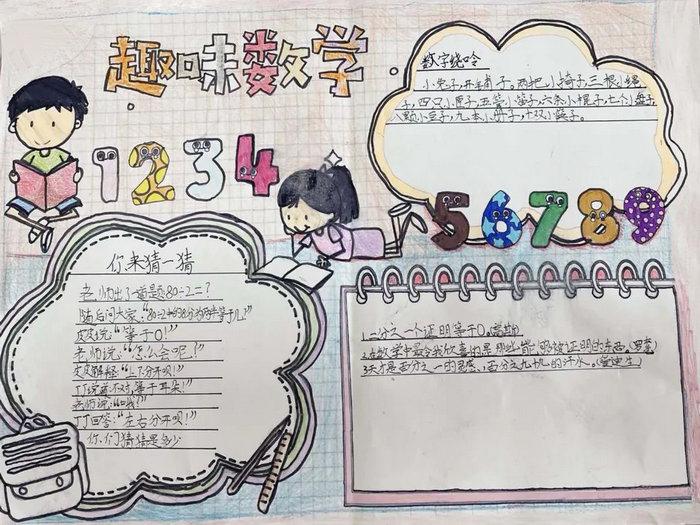 趣味数学
1 2 3 4
数字绕口令
小兔子,开铺子。两把小椅子,三根小绳
子,四只小匣子,五管小笛子,六条小棍子,七个小盘子,
八颗小豆子,九本小册子,十双小筷子。
5 6 7 8 9
你来猜一猜
老师出了一道题:80÷2=?
随后问大家:"
皮皮说:"等于0!"
老师说:"怎么会呢!"
皮皮解释:"上下分开呗!"
丁丁说:不对,等于耳朵!
老师说:"哦?"
丁丁回答:"左右分开呗!"
你们猜猜是多少
1.二分之一个证明等于0。
2.在数学中最令我欣喜的是那些能够被证明的东西。(罗素)
3.天才是百分之一的灵感,百分之九十九的汗水。(爱迪生)